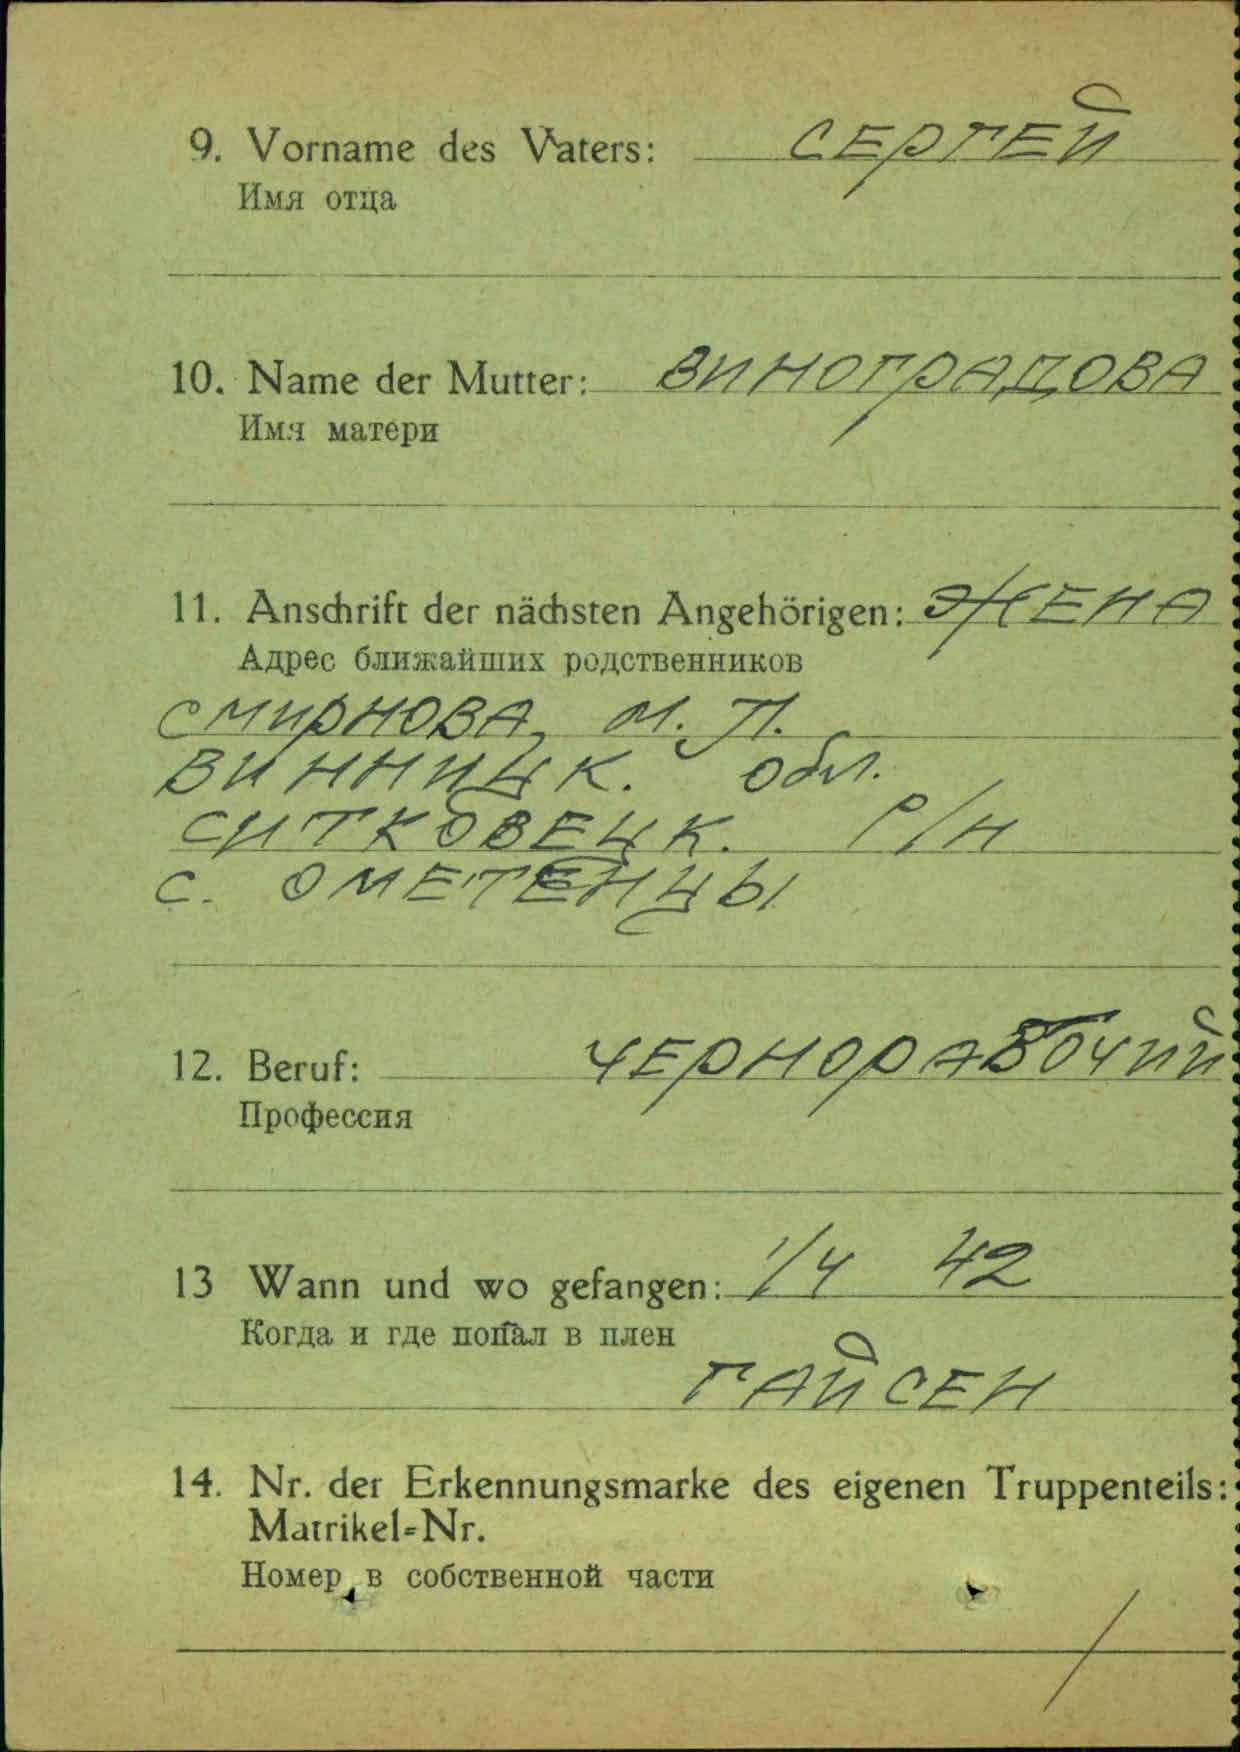 9. Vorname des Vaters: СЕРГЕЙ
Имя отца
10. Name der Mutter: ВИНОГРАДОВА
Имя матери
11. Anschrift der nächsten Angehörigen: ЖЕНА
Адрес ближайших родственников
СМИРНОВА, М. П.
ВИННИЦК. обл.
СИТКОВЕЦК. Р/Н
С. ОМЕТЕНЦЫ
12. Beruf: ЧЕРНОРАБОЧИЙ
Профессия
13 Wann und wo gefangen: 1/4 42
Когда и где попал в плен
ГАЙСЕН
14. Nr. der Erkennungsmarke des eigenen Truppenteils:
Matrikel=Nr.
Номер в собственной части
/